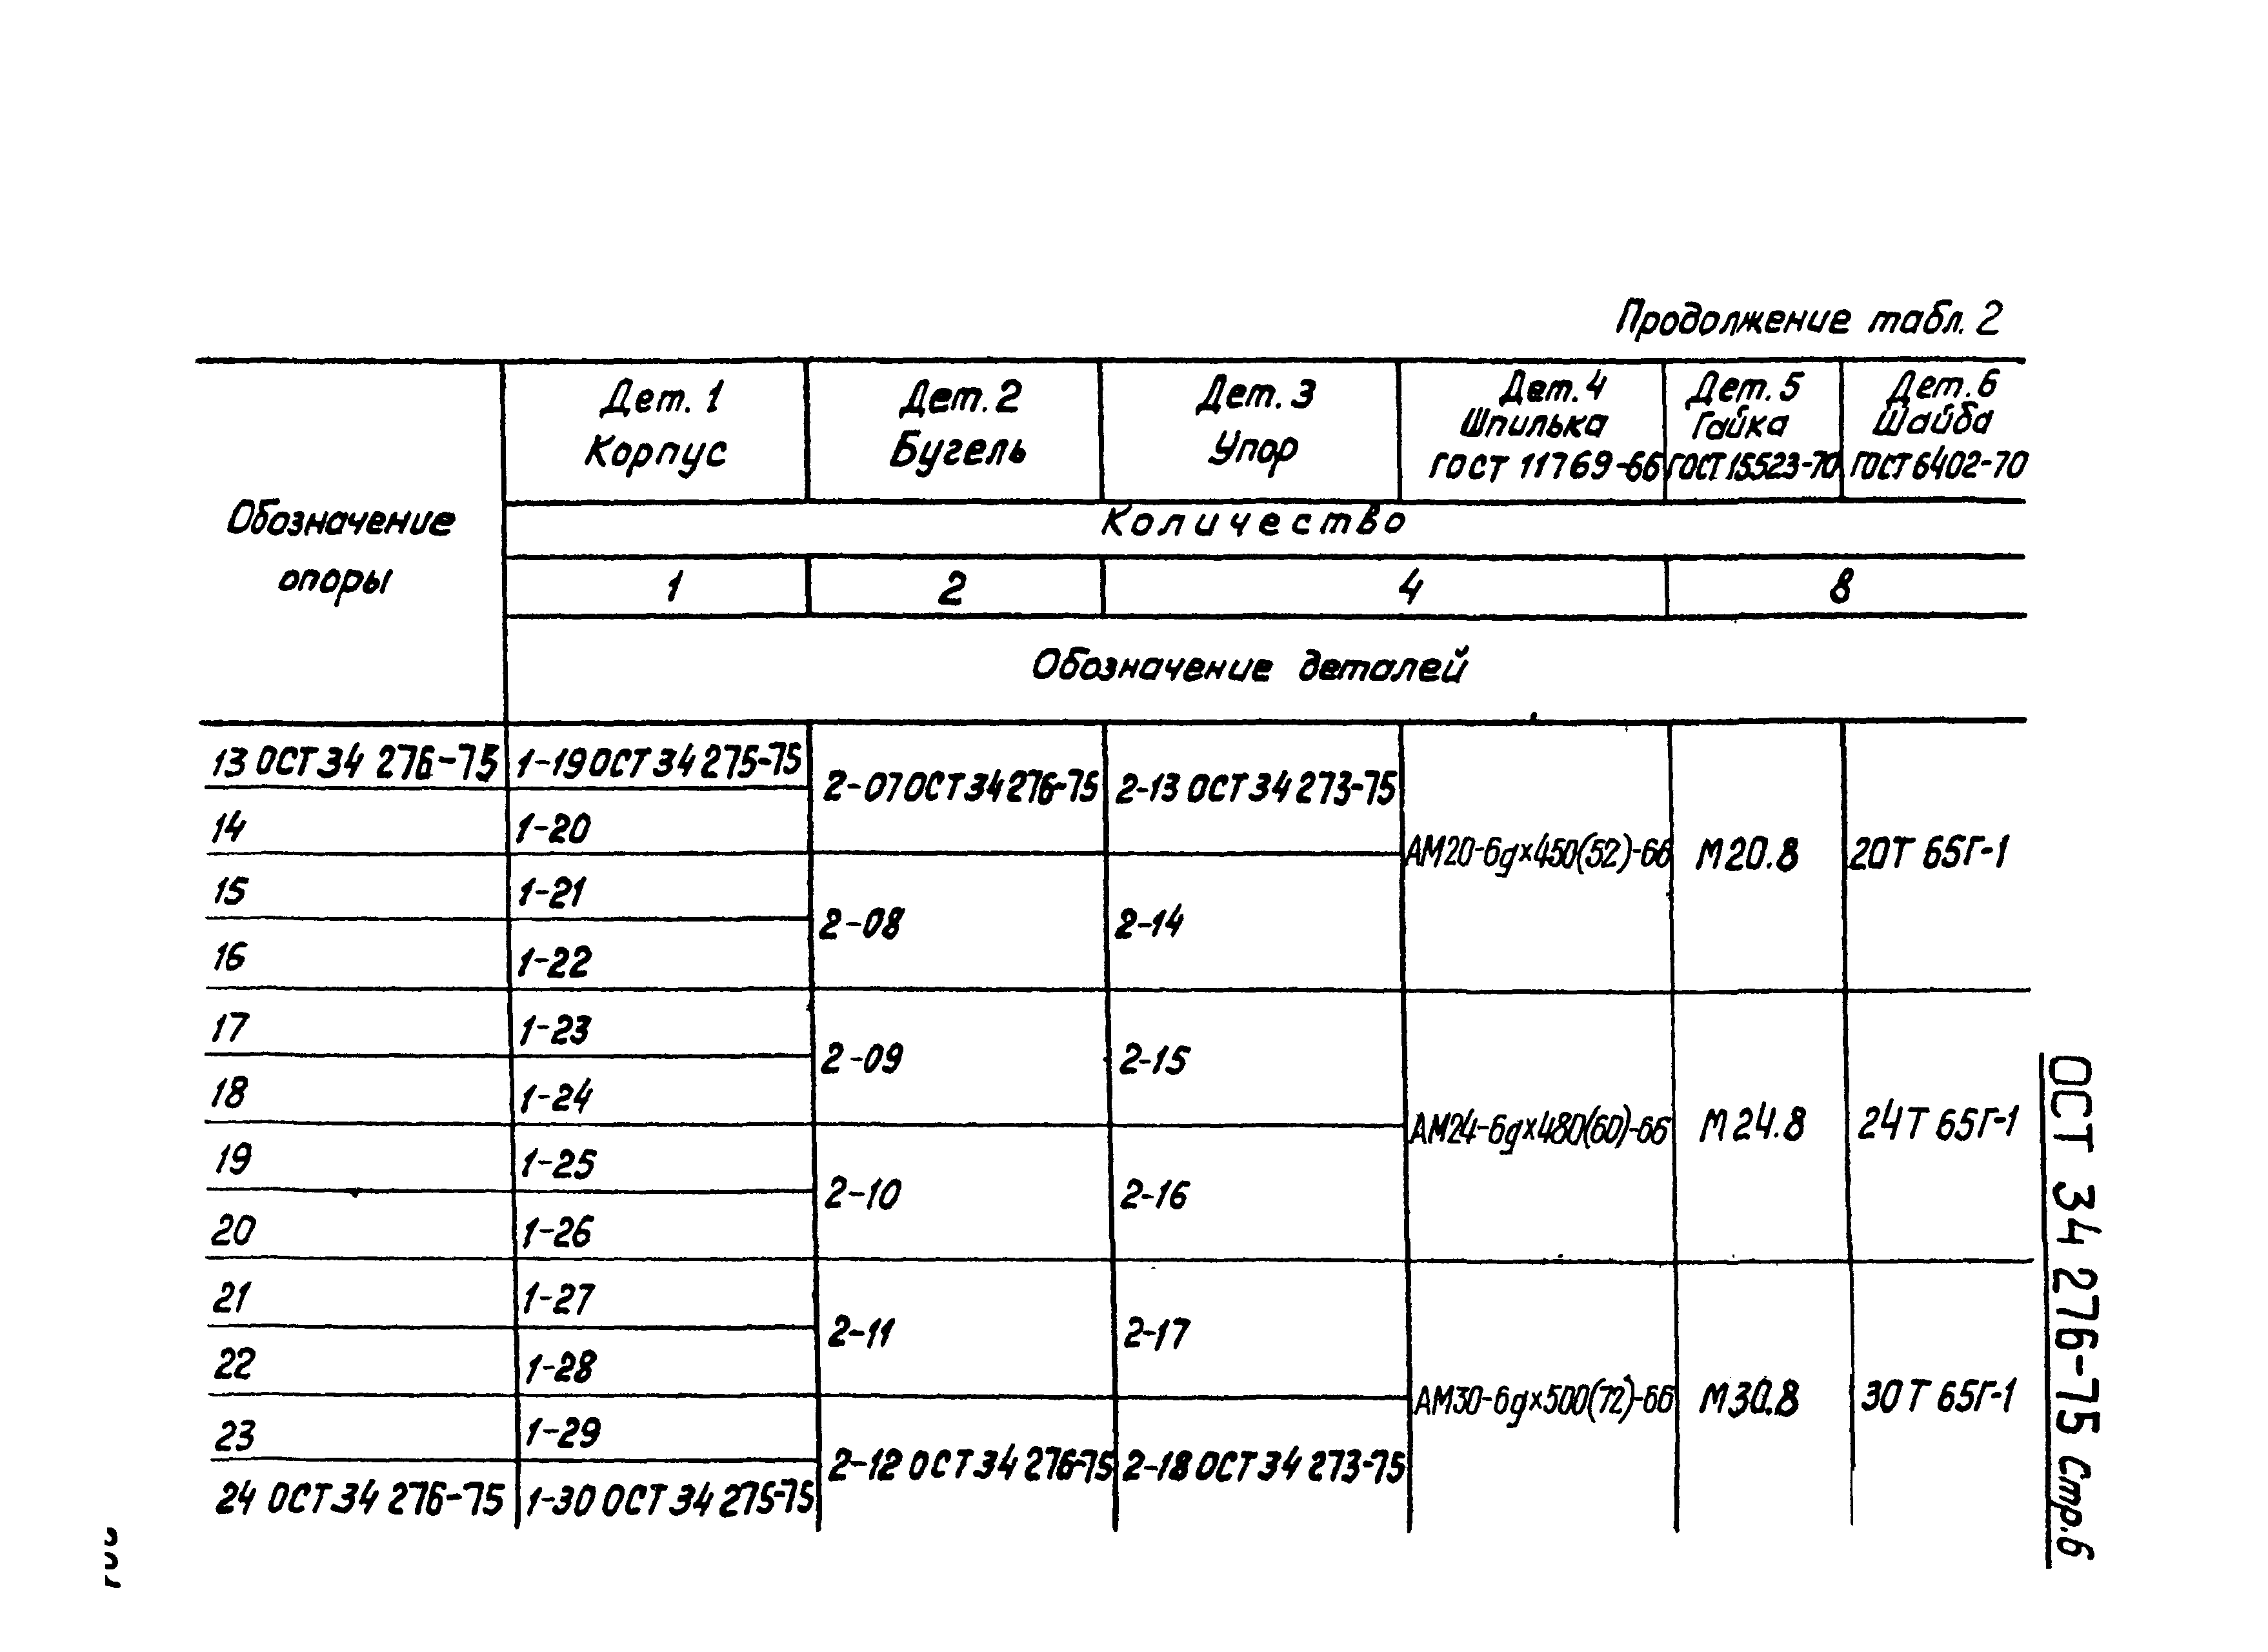 Продолжение табл. 2
Обозначение
опоры
Дет. 1
Корпус
Дет. 2
Бугель
Дет. 3
Упор
Дет. 4
Шпилька
ГОСТ 11769-66
Дет. 5
Гайка
ГОСТ 15523-70
Дет. 6
Шайба
ГОСТ 6402-70
Количество
1 2 4 8
Обозначение деталей
13 ОСТ 34 276-75 1-19 ОСТ 34 275-75
2-07 ОСТ 34 276-75 2-13 ОСТ 34 273-75
14 1-20
АМ20-6g×450(52)-66 М20.8 20Т 65Г-1
15 1-21
2-08 2-14
16 1-22
17 1-23
2-09 2-15
18 1-24
АМ24-6g×480(60)-66 М24.8 24Т 65Г-1
19 1-25
2-10 2-16
20 1-26
21 1-27
2-11 2-17
22 1-28
АМ30-6g×500(72)-66 М30.8 30Т 65Г-1
23 1-29
2-12 ОСТ 34 276-75 2-18 ОСТ 34 273-75
24 ОСТ 34 276-75 1-30 ОСТ 34 275-75
ОСТ 34 276-75 Стр. 6